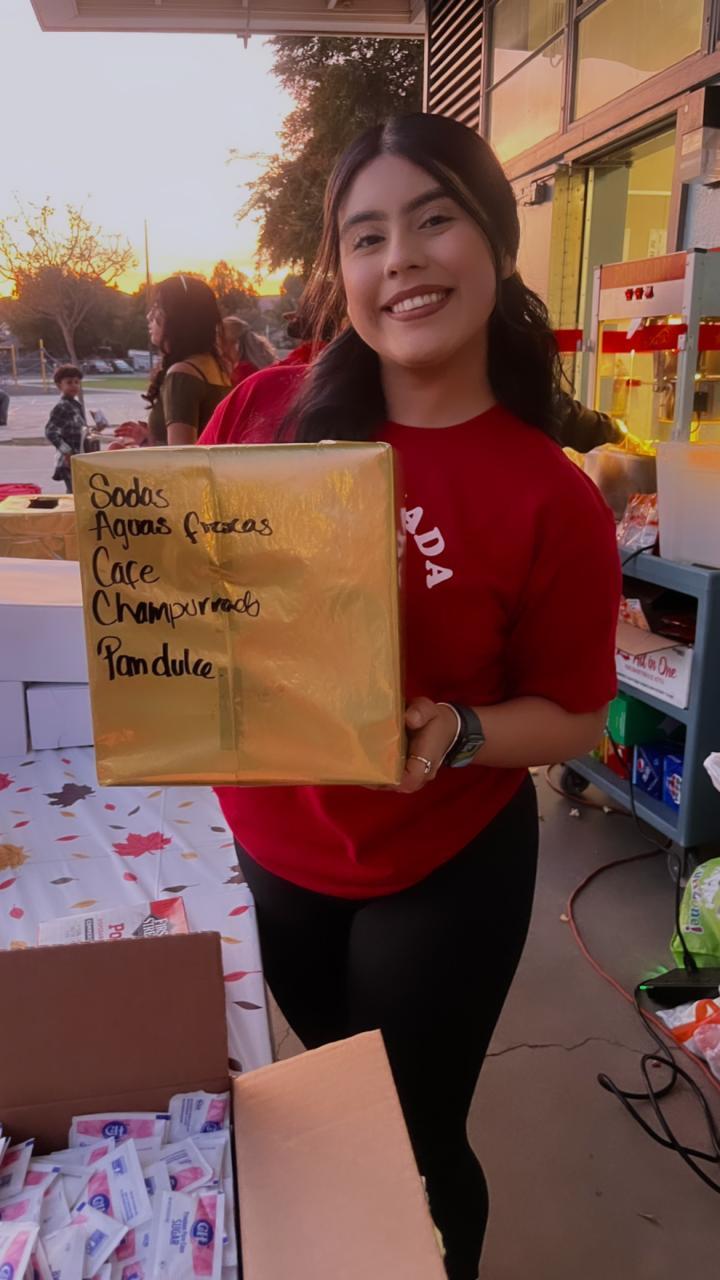 Sodas
Aguas frescas
Cafe
Champurrado
Pan dulce
ADA
All in One
SUGAR